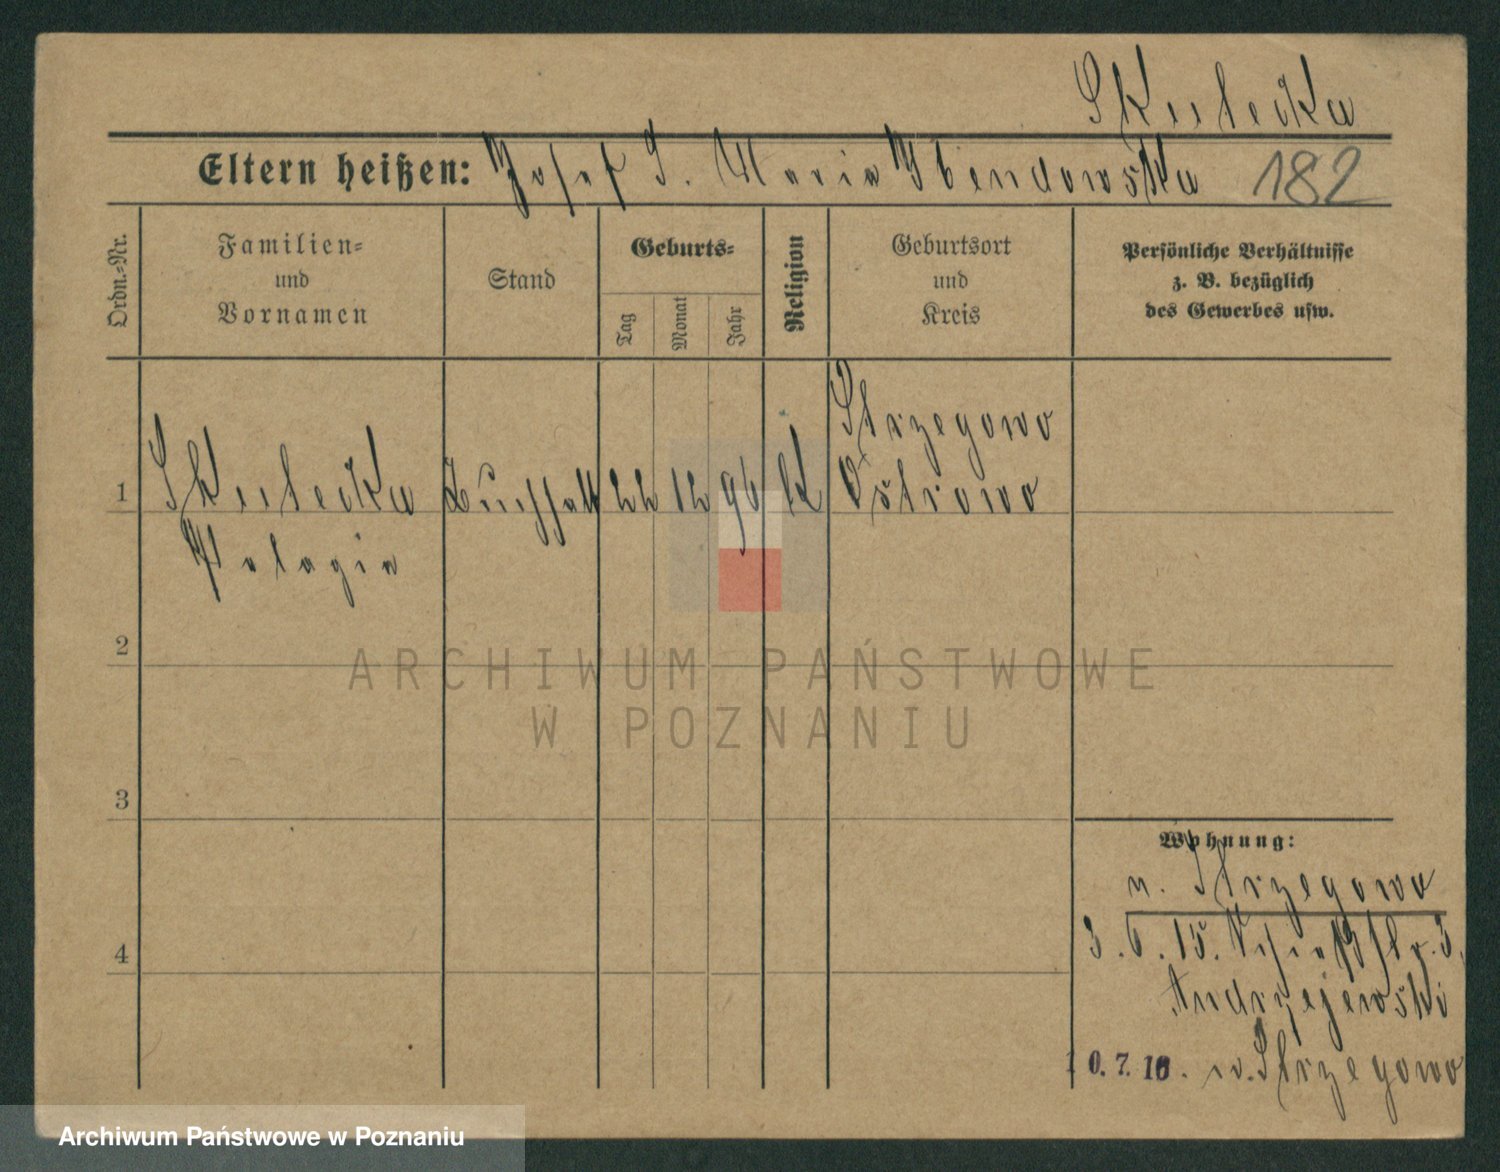 Skutecka
Eltern heißen: Josef S. Maria Ibendowska 182
Ordn.-Nr.
Familien-
und
Vornamen
Stand
Geburts-
Tag
Monat
Jahr
Religion
Geburtsort
und
Kreis
Persönliche Verhältnisse
z. B. bezüglich
des Gewerbes usw.
Strzegowo
1 Skutecka Buchhalt 22 12 96 K Ostrowo
Pelagia
2
ARCHIWUM PAŃSTWOWE
W POZNANIU
3
Wohnung:
n. Strzegowo
4 3.6.15. str. 3.
Andrzejewski
10.7.16. n. Strzegowo
Archiwum Państwowe w Poznaniu